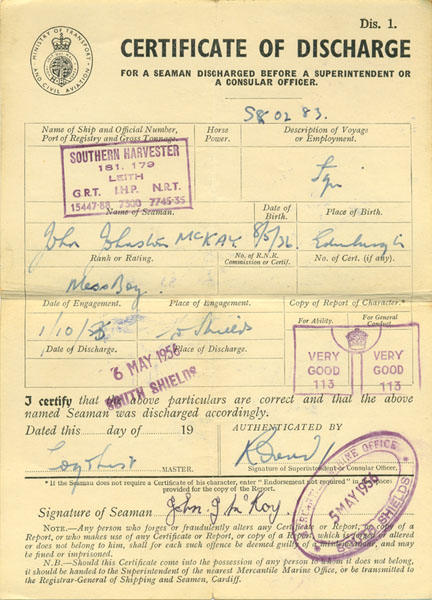 Dis. 1.
MINISTRY OF TRANSPORT AND CIVIL AVIATION
CERTIFICATE OF DISCHARGE
FOR A SEAMAN DISCHARGED BEFORE A SUPERINTENDENT OR
A CONSULAR OFFICER.
Name of Ship and Official Number,
Port of Registry and Gross Tonnage.
Horse
Power.
Description of Voyage
or Employment.
SOUTHERN HARVESTER
181. 179
LEITH
G.R.T. I.H.P. N.R.T.
15447·88 7300 7745·35
Name of Seaman.
Date of
Birth.
Place of Birth.
John Johnston McKAY
Edinburgh
Rank or Rating.
No. of R.N.R.
Commission or Certif.
No. of Cert. (if any).
Mess Boy
Date of Engagement.
Place of Engagement.
Copy of Report of Character.*
For Ability.
For General
Conduct.
1/10/55
Shields
Date of Discharge.
Place of Discharge.
6 MAY 1956
SOUTH SHIELDS
VERY
GOOD
113
VERY
GOOD
113
I certify that the above particulars are correct and that the above
named Seaman was discharged accordingly.
Dated this day of 19
AUTHENTICATED BY
MASTER.
Signature of Superintendent or Consular Officer,
* If the Seaman does not require a Certificate of his character, enter "Endorsement not required" in the space
provided for the copy of the Report.
MERCANTILE MARINE OFFICE
5 MAY 1956
SOUTH SHIELDS
Signature of Seaman
NOTE.—Any person who forges or fraudulently alters any Certificate or Report, or copy of a
Report, or who makes use of any Certificate or Report, or copy of a Report which is forged, altered
or does not belong to him, shall for each such offence be deemed guilty of a misdemeanour, and may
be fined or imprisoned.
N.B.—Should this Certificate come into the possession of any person to whom it does not belong,
it should be handed to the Superintendent of the nearest Mercantile Marine Office, or be transmitted to
the Registrar-General of Shipping and Seamen, Cardiff.